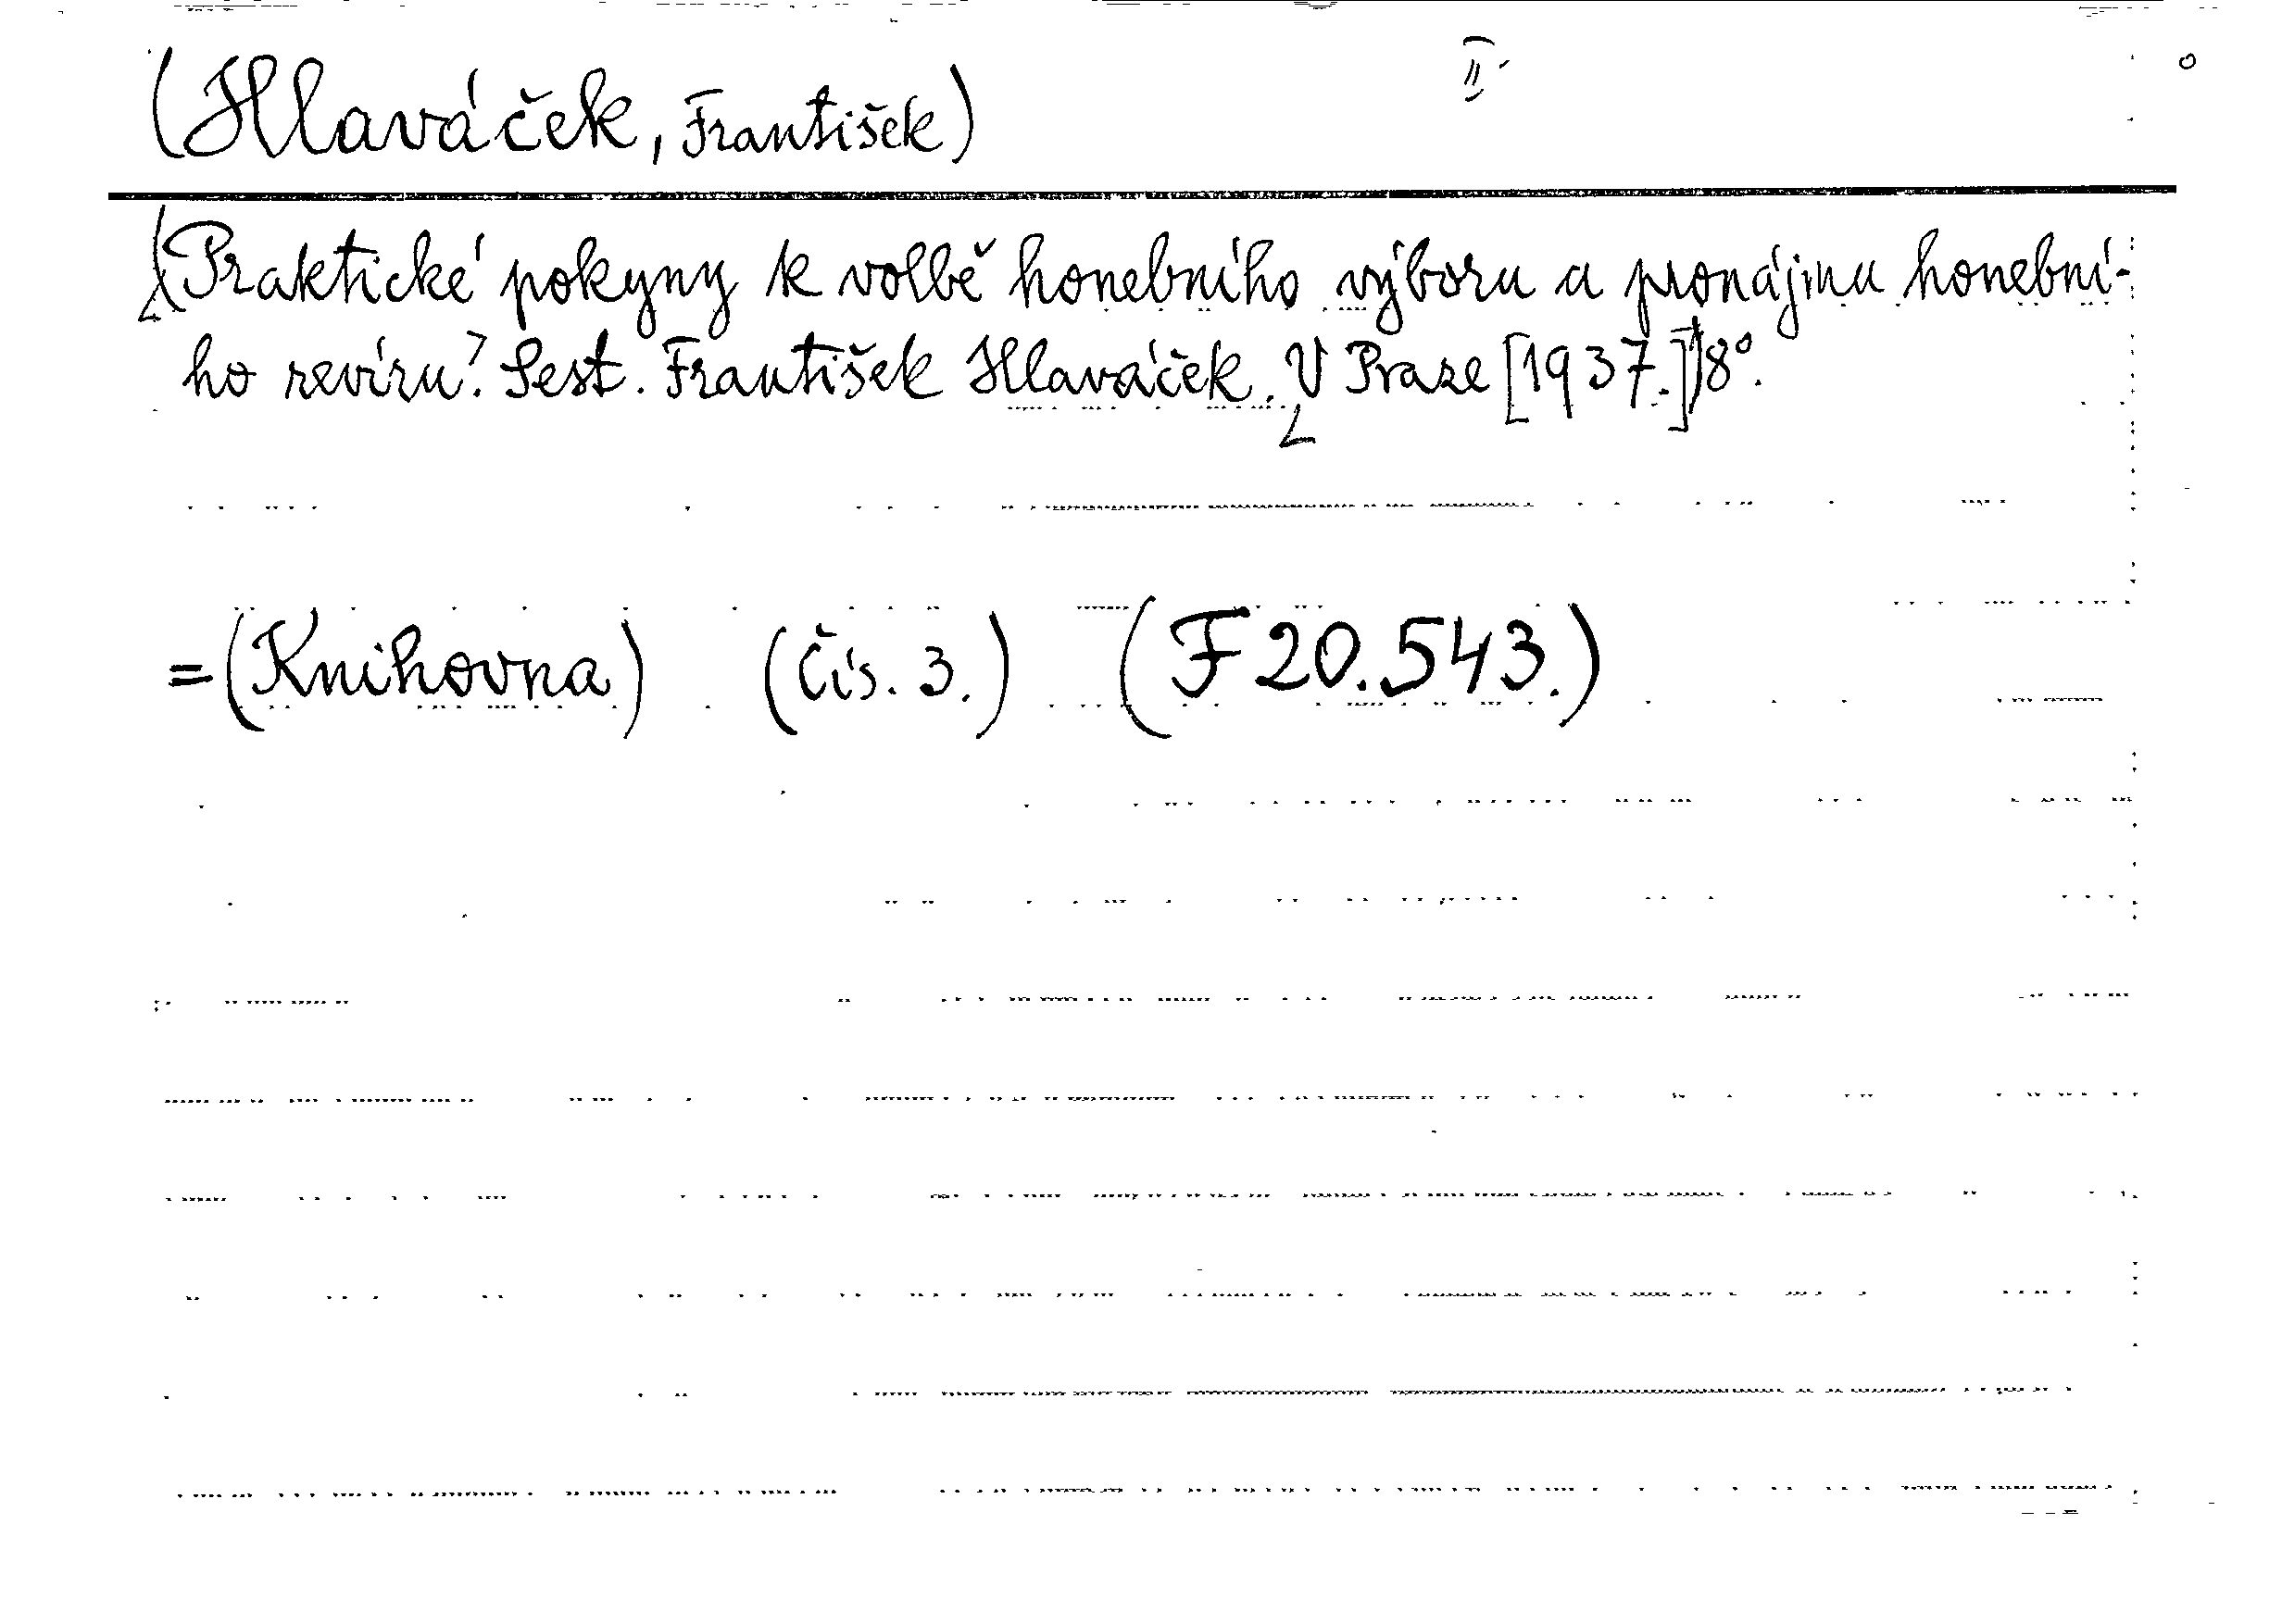 (Hlaváček, František) II.
(Praktické pokyny k volbě honebního výboru a pronájmu honební-
ho revíru? Sest. František Hlaváček. V Praze [1937.]) 8°.
=(Knihovna) (Čís. 3.) (F 20.543.)